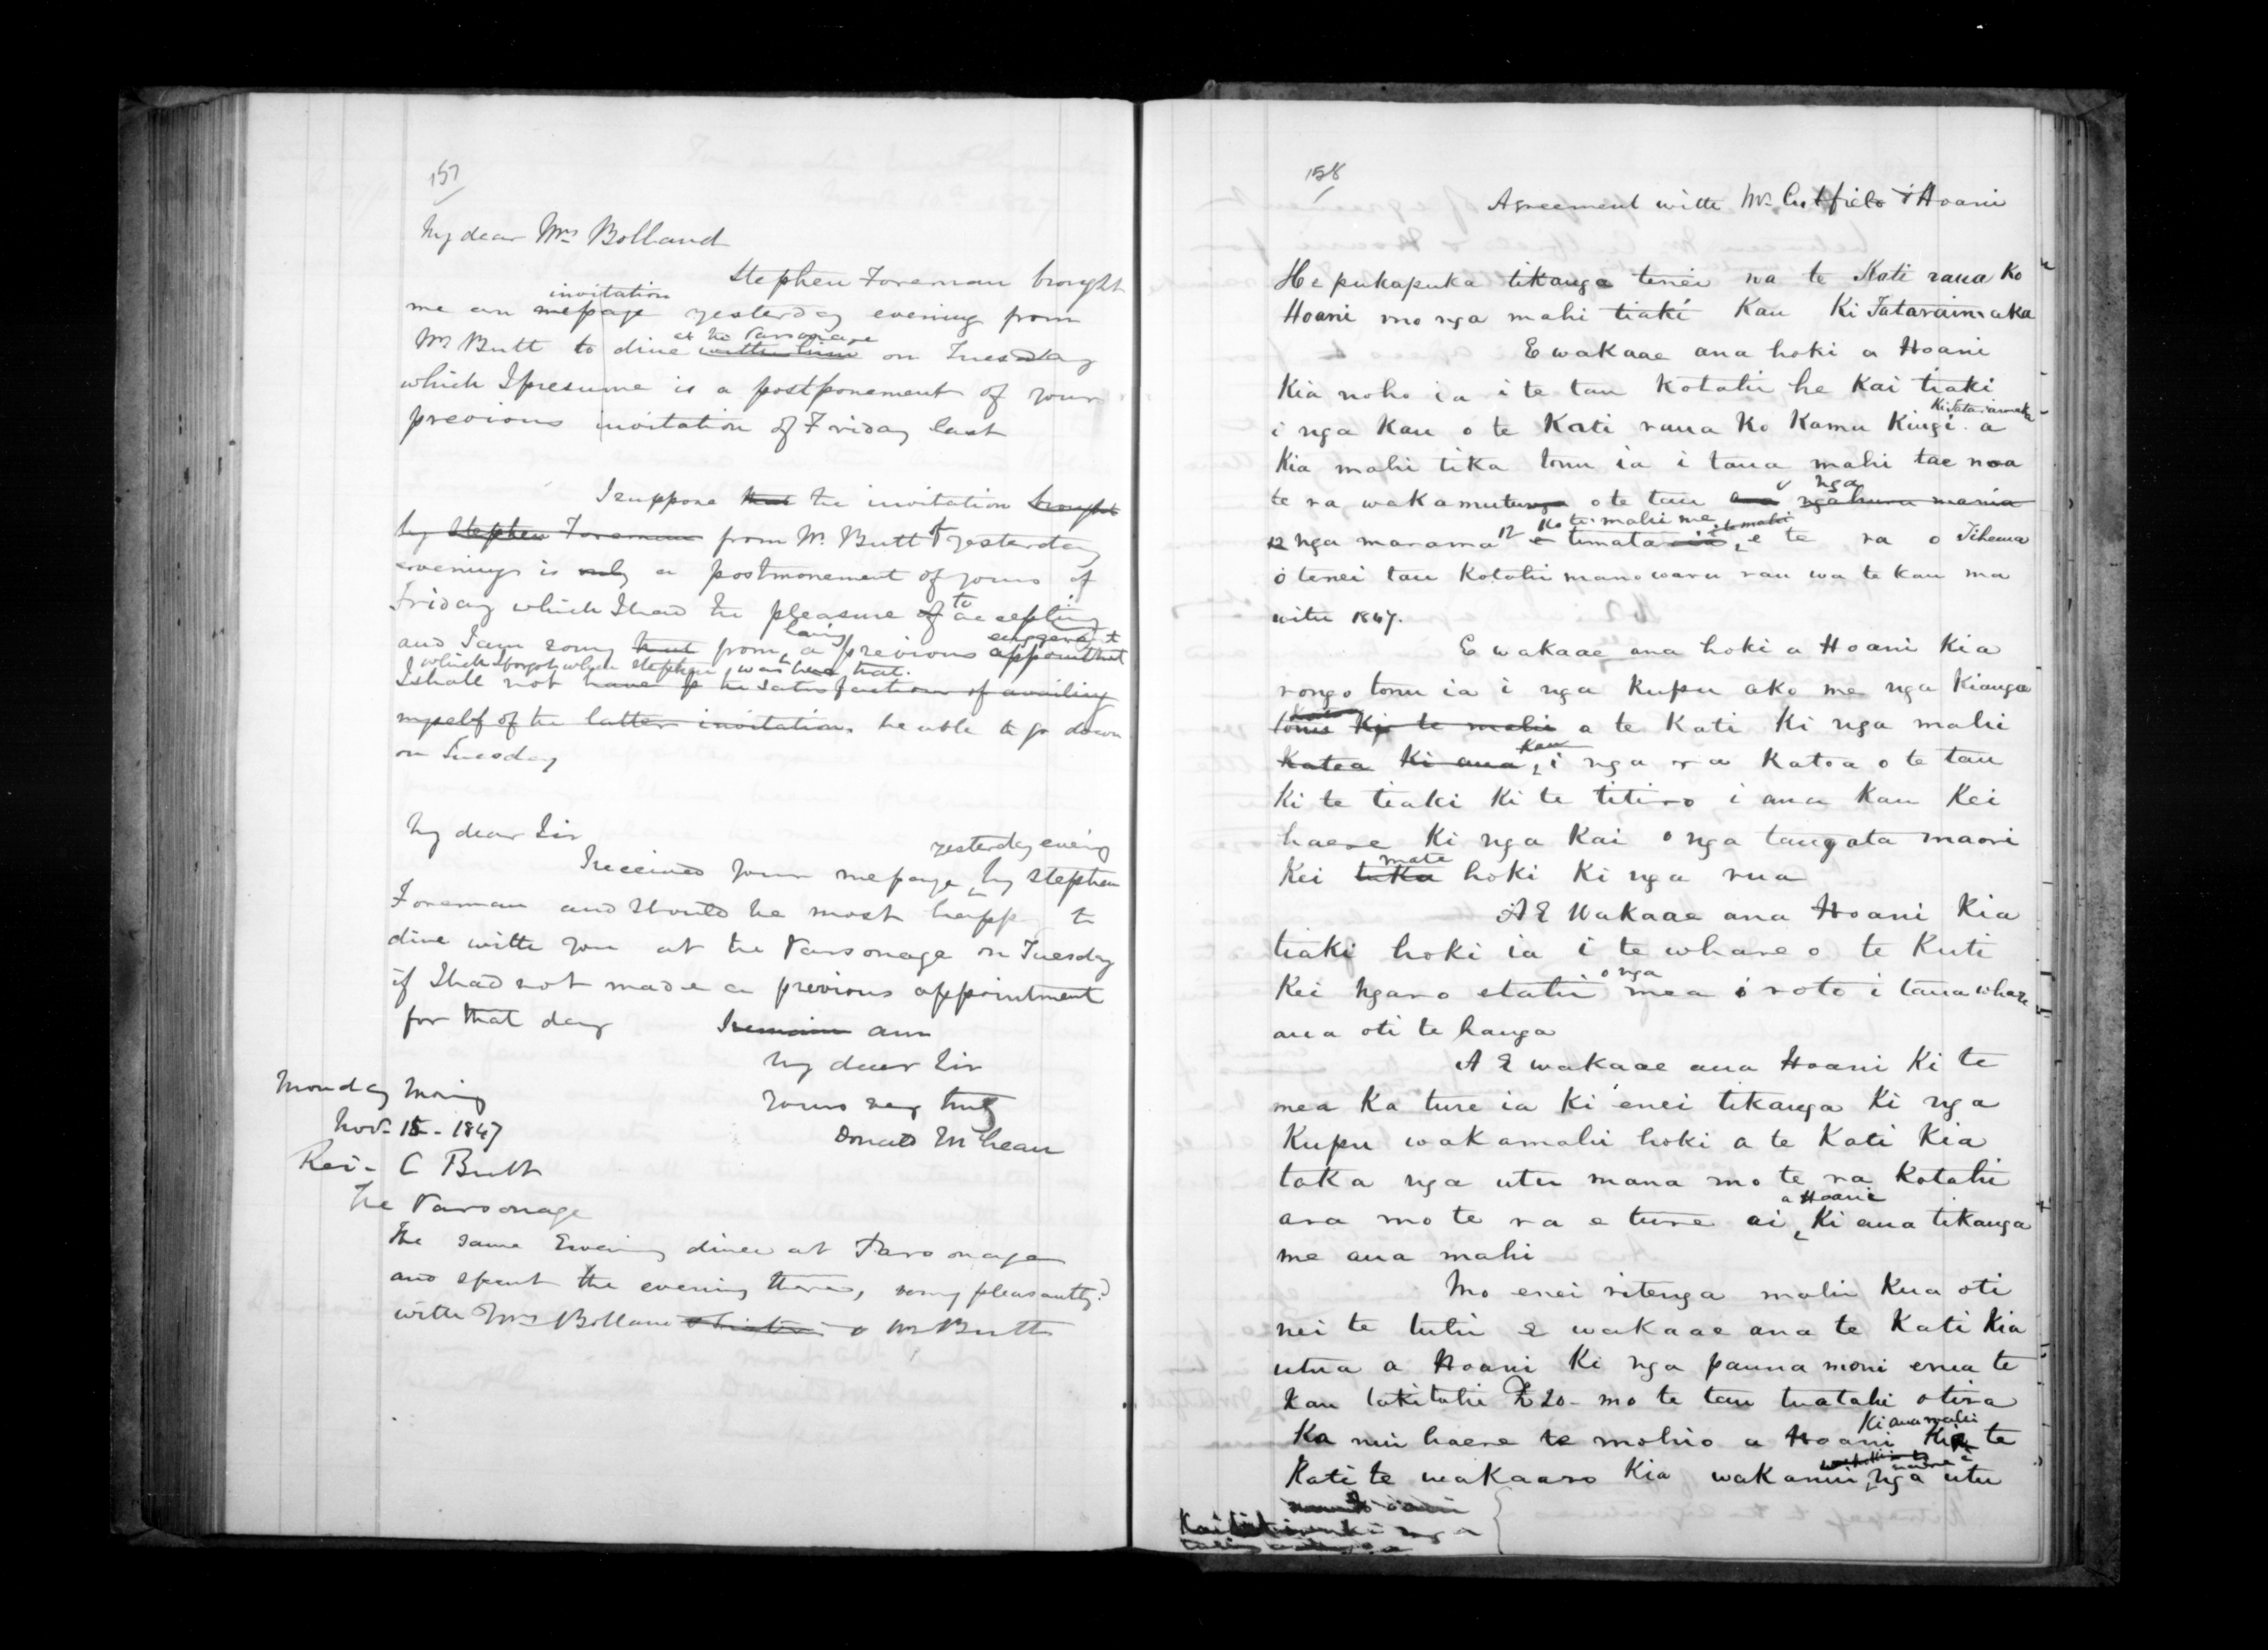 157
My dear Mrs Bolland
Stephen Foreman brought
invitation
me an message yesterday evening from
at the Parsonage
Mr Butt to dine with him on Tuesday
which I presume is a postponement of your
previous invitation of Friday last
I suppose that the invitation brought
by Stephen Foreman from Mr Butt yesterday
evening is only a postponement of yours of
Friday which I had the pleasure of to accepting
having engagent
and I am sorry that from a previous appointment
which I forgot when Stephen was here that.
I shall not have the satisfaction of availing
myself of the latter invitation. be able to go down
on Tuesday
My dear Sir
yesterday evenig
I received your message by Stephen
Foreman and should be most happy to
dine with you at the Parsonage on Tuesday
if I had not made a previous appointment
for that day I remain am
My dear Sir
Monday Mornig Yours very truly
Nov. 15 - 1847 Donald McLean
Rev. C Butt
The Parsonage
The same Evening dined at Parsonage
and spent the evening there, very pleasantly?
with Mrs Bolland & Mr Butt
158
Agreement with Mr. Cutfield & Hoani
He pukapuka tikanga tenei na te Kati raua ko
Hoani mo nga mahi tiaki Kau Ki Tataraimaka
E wakaae ana hoki a Hoani
Kia noho ia i te tau Kotahi he Kai tiaki
Ki Tataraimaka
i nga Kau o te Kati raua Ko Kamu Kingi. a
Kia mahi tika tonu ia i taua mahi tae noa
nga
te ra wakamutunga o te tau ngahuru maria
12 Ko te mahi me i te mahi
12 nga marama e timata ia, e te ra o Tihema
o tenei tau Kotahi mano waru rau wa te kau ma
witu 1847.
E wakaae ana hoki a Hoani Kia
rongo tonu ia i nga Kupu ako me nga Kianga
tonu Ki te mahi a te Kati Ki nga mahi
Kau
Katoa Ki ana, i nga ra Katoa o te tau
Ki te tiaki Ki te titiro i ana Kau Kei
haere Ki nga Kai o nga tangata maori
mate
Kei taka hoki Ki nga rua
A E Wakaae ana Hoani Kia
tiaki hoki ia i te whare o te Kuti
o nga
Kei Ngaro etahi mea i roto i taua whare
ana oti te hanga
A E wakaae ana Hoani Ki te
mea Ka ture ia Ki enei tikanga Ki nga
Kupu wakamahi hoki a te Kati Kia
taka nga utu mana mo te ra Kotahi
a Hoani
ara mo te ra e ture ai, Ki ana tikanga
me ana mahi
Mo enei ritenga mahi Kua oti
nei te tuhi E wakaae ana te Kati Kia
utua a Hoani Ki nga pauna moni erua te
Kau takitahi £20- mo te tau tuatahi otira
Ki ana mahi
Ka nui haere te mohio a Hoani Kei te
Kati te wakaaro Kia wakanui, nga utu